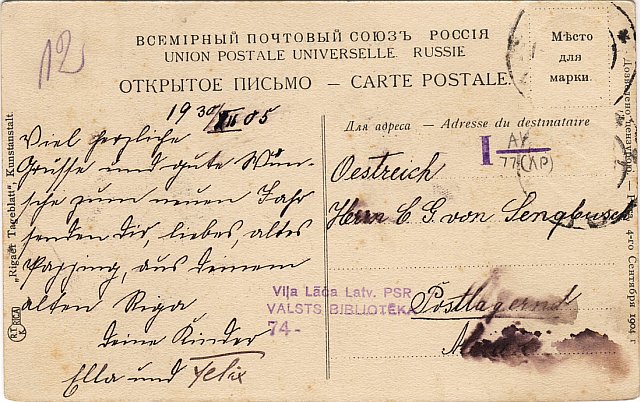 12
ВСЕМІРНЫЙ ПОЧТОВЫЙ СОЮЗЪ РОССІЯ
UNION POSTALE UNIVERSELLE. RUSSIE
ОТКРЫТОЕ ПИСЬМО — CARTE POSTALE
Мѣсто
для
марки.
1930/XII 05
Viel herzliche
Grüsse und gute Wün-
sche zum neuen Jahr
senden Dir, liebes, altes
aus Deinem
alten Riga
Deine Kinder
Ella und Felix
Для адреса — Adresse du destinataire
I AV
77(ΛP)
Oestreich
Herrn C. G. von Sengbusch
Postlagernd
Vija Lāča Latv. PSR
VALSTS BIBLIOTĒKA
74-
„Rigaer Tageblatt", Kunstanstalt
R.T. RIGA
Дозволено цензурою. — 4-го Сентября 1904 г.